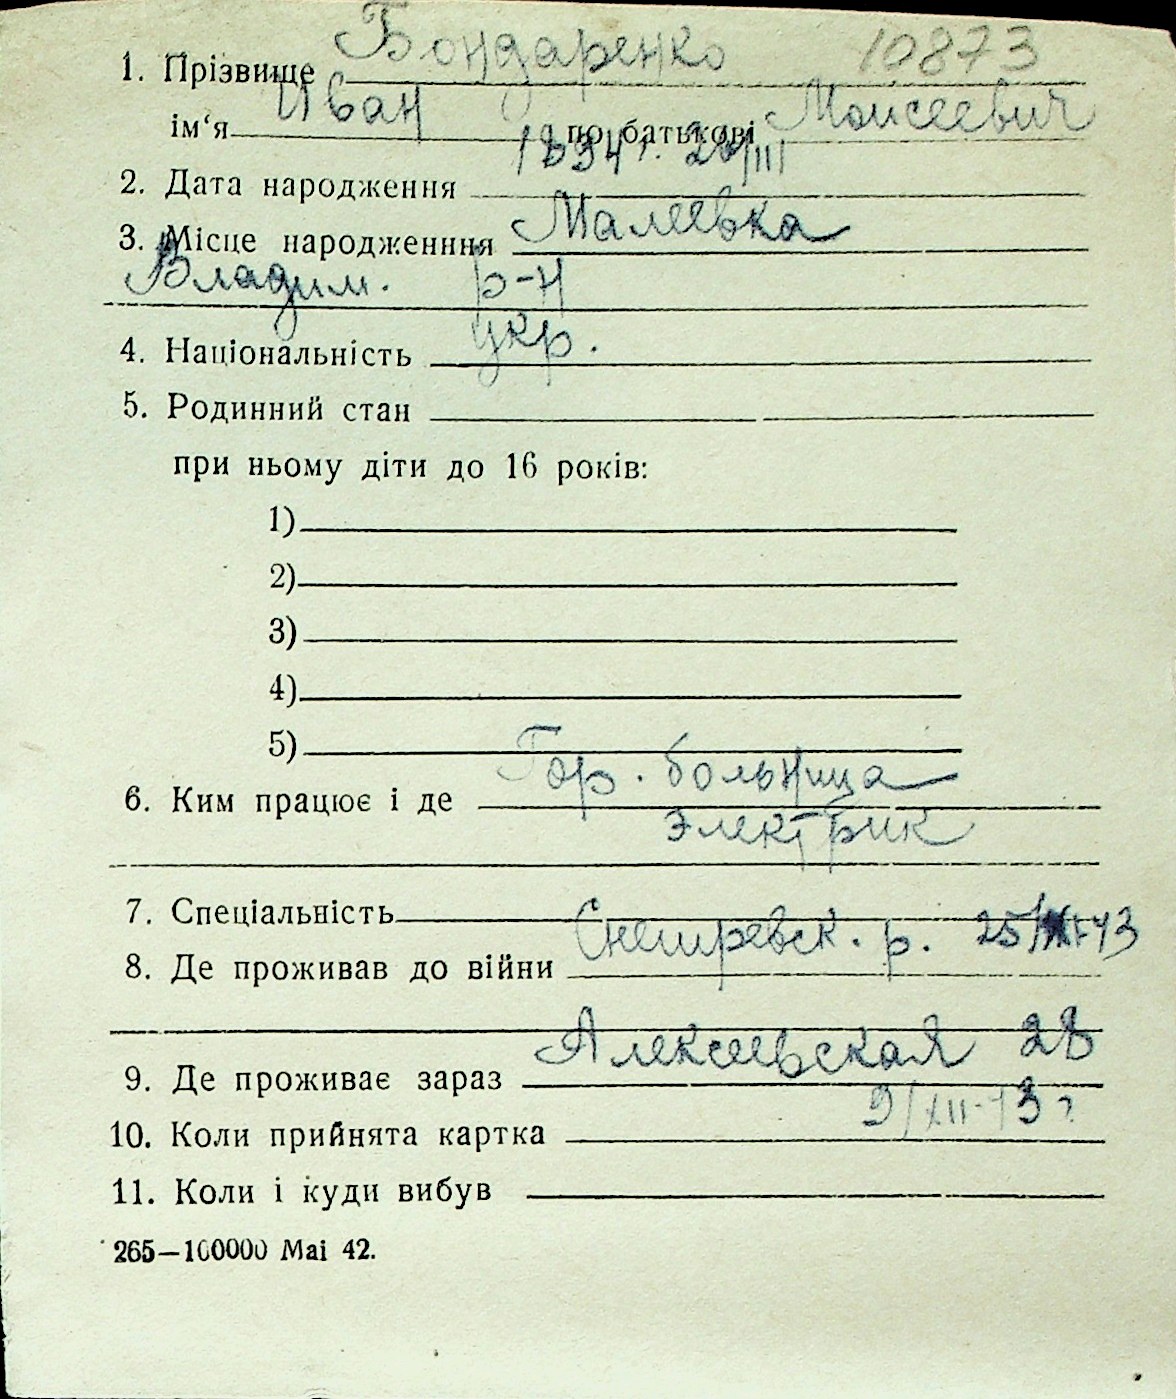 Бондаренко 10873
1. Прізвище
Иван Моисеевич
ім‘я по батькові
1894 г. 20/III
2. Дата народження
Малеевка
3. Місце народженння
Владим. р-н
укр.
4. Національність
5. Родинний стан
при ньому діти до 16 років:
1)
2)
3)
4)
5)
Гор. больница
6. Ким працює і де
Электрик
7. Спеціальність
р. 25/ 43
8. Де проживав до війни
Алексеевская 28
9. Де проживає зараз
9/XII-43 г
10. Коли прийнята картка
11. Коли і куди вибув
265—100000 Mai 42.